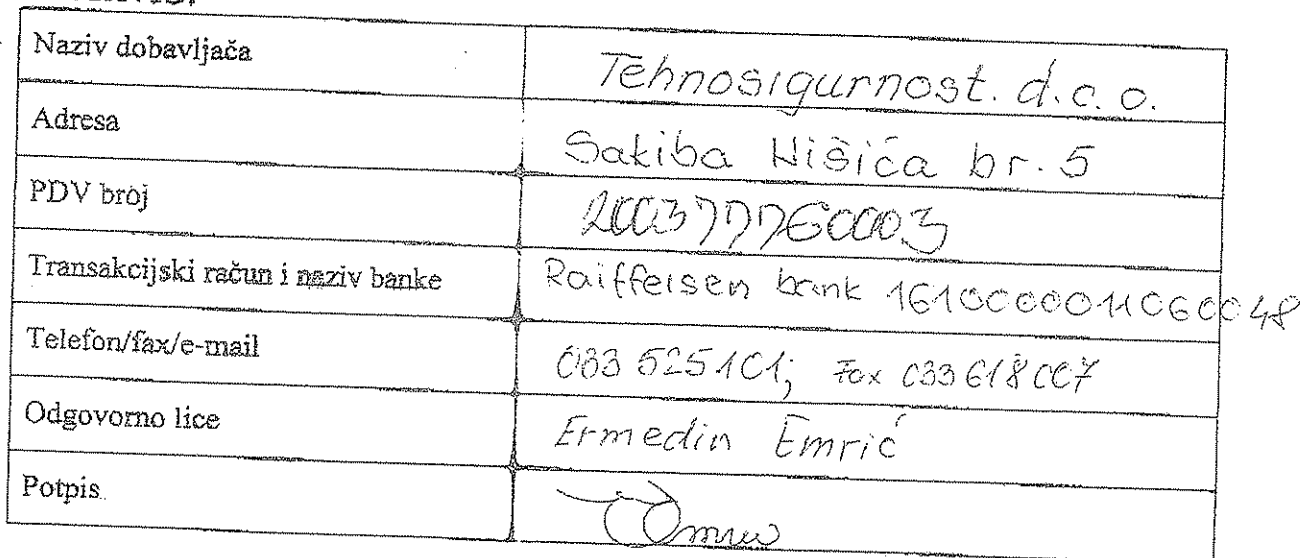 Naziv dobavljača Tehnosigurnost. d.o.o.
Adresa Sakiba Nišića br. 5
PDV broj 200377760003
Transakcijski račun i naziv banke Raiffeisen bank 1610000011060048
Telefon/fax/e-mail 033 525101; Fax 033618007
Odgovorno lice Ermedin Emrić
Potpis